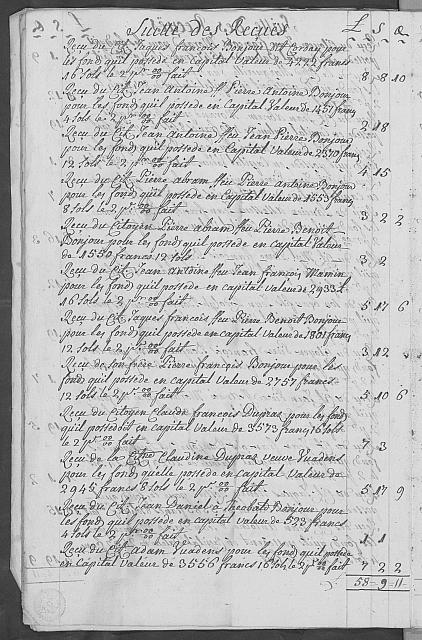 Suitte des Recues £ S &
Recu du Cit. Jaques françois Bonjour pour
les fond qu'il possede en Capital Valeur de 4222 francs
16 Sols le 2 pr 00/00 fait 8 8 10
Recu du Cit. Jean Antoine ffeu Pierre Antoine Bonjour
pour les fond qu'il possede en Capital Valeur de 1451 franc
4 Sols le 2 pr 00/00 fait 2 18
Recu du Cit. Jean Antoine ffeu Jean Pierre Bonjour
pour les fond qu'il possede en Capital Valeur de 2370 franc
12 Sols le 2 pr 00/00 fait 4 15
Recu du Cit. Pierre abram ffeu Pierre Antoine Bonjour
pour les fond qu'il possede en Capital Valeur de 1553 franc
8 Sols le 2 pr 00/00 fait 3 2 2
Recu du Citoyen Pierre abram ffeu Pierre Benoit
Bonjour pour les fond qu'il possede en Capital Valeur
de 1550 francs 12 Sols 3 2
Recu du Cit. Jean Antoine ffeu Jean françois Mamin
pour les fond qu'il possede en Capital Valeur de 2933 f
16 Sols le 2 pr 00/00 fait 5 17 6
Recu du Cit. Jaques francois ffeu Pierre Benoit Bonjour
pour les fond qu'il possede en Capital Valeur de 1801 franc
12 Sols le 2 pr 00/00 fait 3 12
Recu de son frère Pierre françois Bonjour pour les
fond qu'il possede en Capital Valeur de 2757 francs
12 Sols le 2 pr 00/00 fait 5 10 6
Recu du Citoyen Claude francois Dupraz pour les fond
qu'il possedoit en Capital Valeur de 3573 franc 16 Sols
le 2 pr 00/00 fait 7 3
Recu de la Citne Claudine Dupraz veuve Vuadens
pour les fond quelle possede en Capital Valeur de
2945 francs 8 Sols le 2 pr 00/00 fait 5 17 9
Recu du Cit. Jean Daniel à Theobald Bonjour pour
les fond qu'il possede en Capital Valeur de 523 francs
4 Sols le 2 pr 00/00 fait 1 1
Recu du Cit. adam Vuadens pour les fond qu'il possede
en Capital Valeur de 3556 francs 16 Sols le 2 pr 00/00 fait 7 2 2
58 - 9 - 11